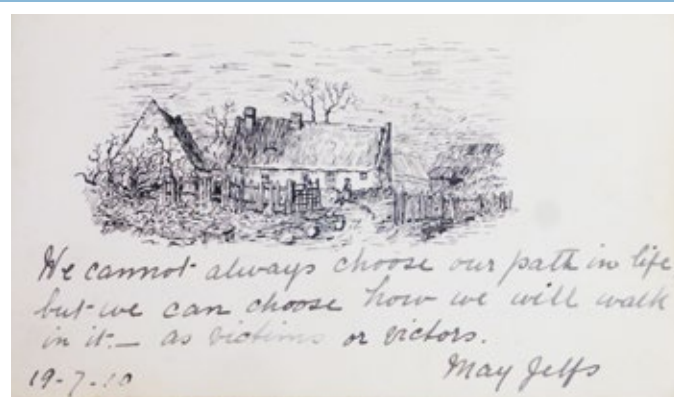 We cannot always choose our path in life
but we can choose how we will walk
in it. — as victims or victors.
May Jelfs
19-7-10